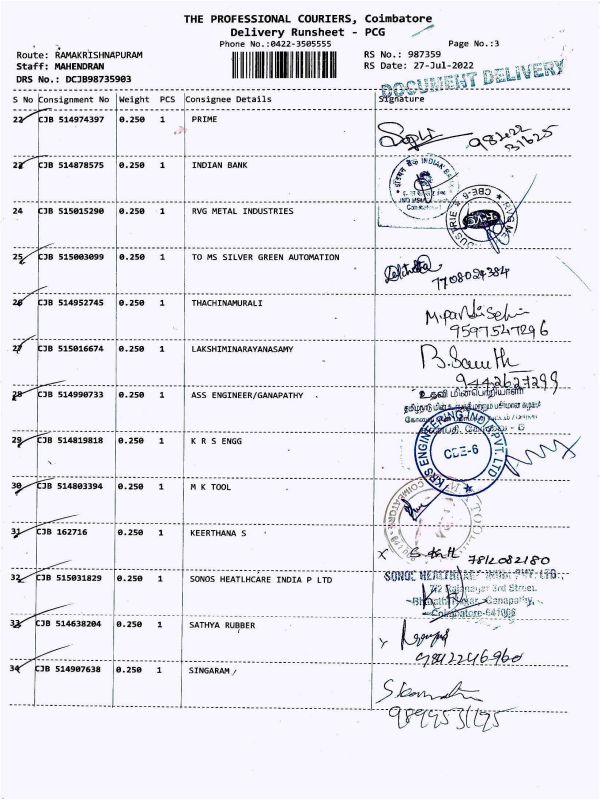 THE PROFESSIONAL COURIERS, Coimbatore
Delivery Runsheet - PCG
Phone No.:0422-3505555
Page No.:3
Route: RAMAKRISHNAPURAM
RS No.: 987359
Staff: MAHENDRAN
RS Date: 27-Jul-2022
DRS No.: DCJB98735903
DOCUMENT DELIVERY
S No Consignment No Weight PCS Consignee Details Signature
22 CJB 514974397 0.250 1 PRIME
23 CJB 514878575 0.250 1 INDIAN BANK
24 CJB 515015290 0.250 1 RVG METAL INDUSTRIES
CBE-6
25 CJB 515003099 0.250 1 TO MS SILVER GREEN AUTOMATION
7708024384
26 CJB 514952745 0.250 1 THACHINAMURALI
9597547296
27 CJB 515016674 0.250 1 LAKSHIMINARAYANASAMY
9442627299
28 CJB 514990733 0.250 1 ASS ENGINEER/GANAPATHY
உதவி மின்பொறியாளர்
29 CJB 514819818 0.250 1 K R S ENGG
KRS ENGINEERING INDIA PVT. LTD
CBE-6
30 CJB 514803394 0.250 1 M K TOOL
31 CJB 162716 0.250 1 KEERTHANA S
7812082180
32 CJB 515031829 0.250 1 SONOS HEATLHCARE INDIA P LTD
3rd Street,
Ganapathy,
33 CJB 514638204 0.250 1 SATHYA RUBBER
9842246960
34 CJB 514907638 0.250 1 SINGARAM